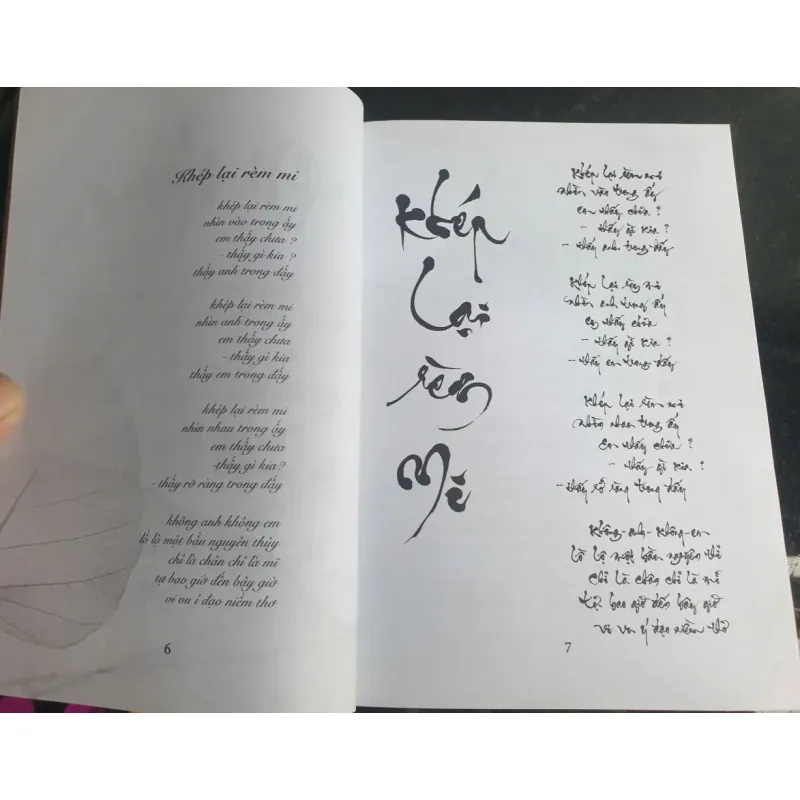 Khép lại rèm mi
khép lại rèm mi
nhìn vào trong ấy
em thấy chưa ?
- thấy gì kia ?
thấy anh trong đấy
khép lại rèm mi
nhìn anh trong ấy
em thấy chưa
- thấy gì kia
thấy em trong đấy
khép lại rèm mi
nhìn nhau trong ấy
em thấy chưa
-thấy gì kia?
- thấy rỡ ràng trong đấy
không anh không em
lồ lộ một bầu nguyên thủy
chỉ là chân chỉ là mĩ
tự bao giờ đến bây giờ
vi vu í đạo niềm thơ
6
khép
lại
rèm
mi
khép lại rèm mi
nhìn vào trong ấy
em thấy chưa ?
- thấy gì kia ?
- thấy anh trong đấy
khép lại rèm mi
nhìn anh trong ấy
em thấy chưa
- thấy gì kia ?
- thấy em trong đấy
khép lại rèm mi
nhìn nhau trong ấy
em thấy chưa ?
- thấy gì kia ?
- thấy rỡ ràng trong đấy
không-anh-không-em
lồ lộ một bầu nguyên thỉ
chỉ là chân chỉ là mĩ
tự bao giờ đến bây giờ
vi vu ý đạo niềm thơ
7